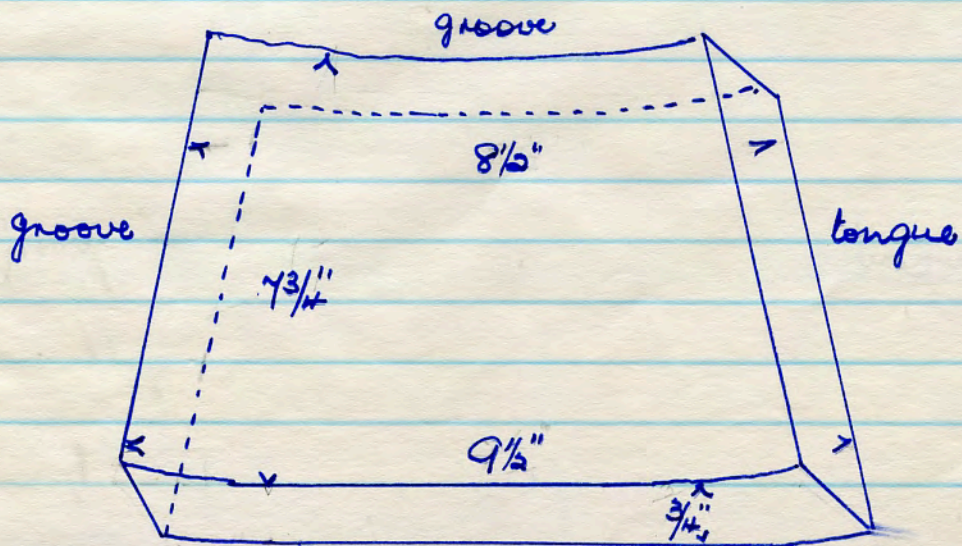 groove
8 1/2"
groove
tongue
7 3/4"
9 1/2"
3/4"